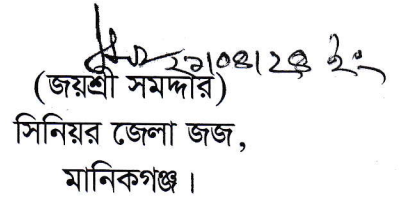 ইং
(জয়শ্রী সমদ্দার)
সিনিয়র জেলা জজ,
মানিকগঞ্জ।